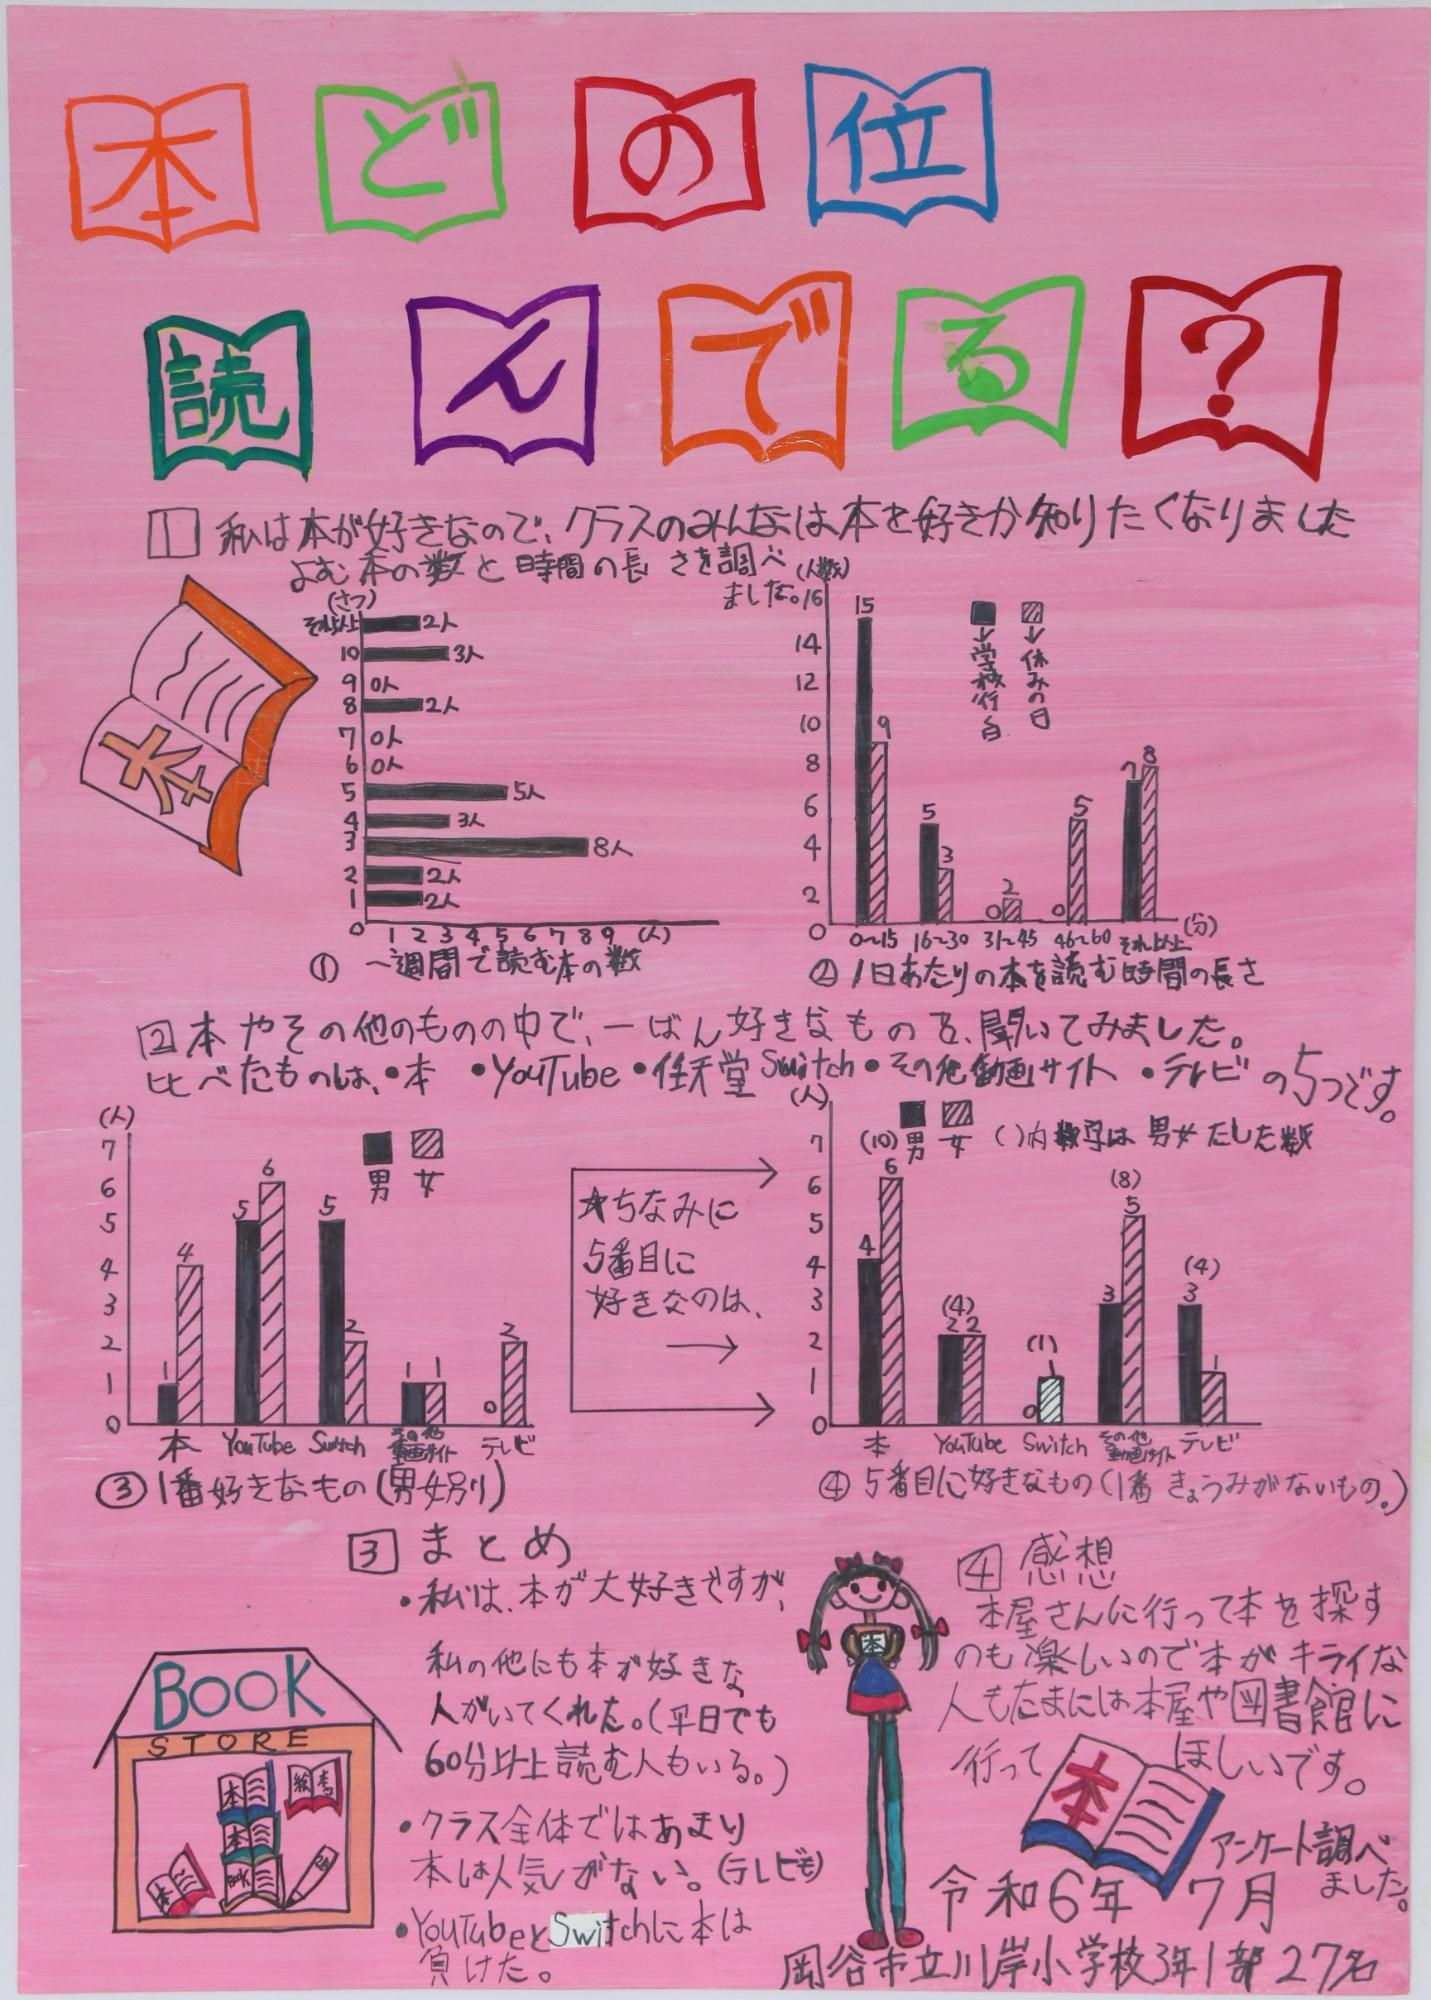 本どの位
読んでる?
1 私は本が好きなので、クラスのみんなは本を好きか知りたくなりました
よむ本の数と時間の長さを調べ
ました。
(さつ)
それ以上 2人
10 3人
9 0人
8 2人
7 0人
6 0人
5 5人
4 3人
3 8人
2 2人
1 2人
0 1 2 3 4 5 6 7 8 9 (人)
① 一週間で読む本の数
(人数)
16
14
12
10
8
6
4
2
0
15 9 5 3 0 2 0 5 7 8
↓学校行く日
↓休みの日
0~15 16~30 31~45 46~60 それ以上 (分)
② 1日あたりの本を読む時間の長さ
2 本やその他のものの中で、一ばん好きなものを、聞いてみました。
比べたものは、・本 ・YouTube・任天堂Switch・その他動画サイト ・テレビの5つです。
(人)
7
6
5
4
3
2
1
0
男 女
1 4 5 6 5 2 1 1 0 2
本 YouTube Switch その他動画サイト テレビ
③ 1番好きなもの(男女別)
★ちなみに
5番目に
好きなのは、
→
(人)
7
6
5
4
3
2
1
0
男 女 ( )内数字は男女たした数
(10) (4) (1) (8) (4)
4 6 2 2 0 1 3 5 3 1
本 YouTube Switch その他動画サイト テレビ
④ 5番目に好きなもの(1番きょうみがないもの。)
3 まとめ
・私は、本が大好きですが、
私の他にも本が好きな
人がいてくれた。(平日でも
60分以上読む人もいる。)
・クラス全体ではあまり
本は人気がない。(テレビも)
・YouTubeとSwitchに本は
負けた。
4 感想
本屋さんに行って本を探す
のも楽しいので本がキライな
人もたまには本屋や図書館に
行って ほしいです。
アンケート調べ
ました。
令和6年 7月
岡谷市立川岸小学校3年1部27名
本
BOOK
STORE
本
絵本
本
本
BOOK
本
本